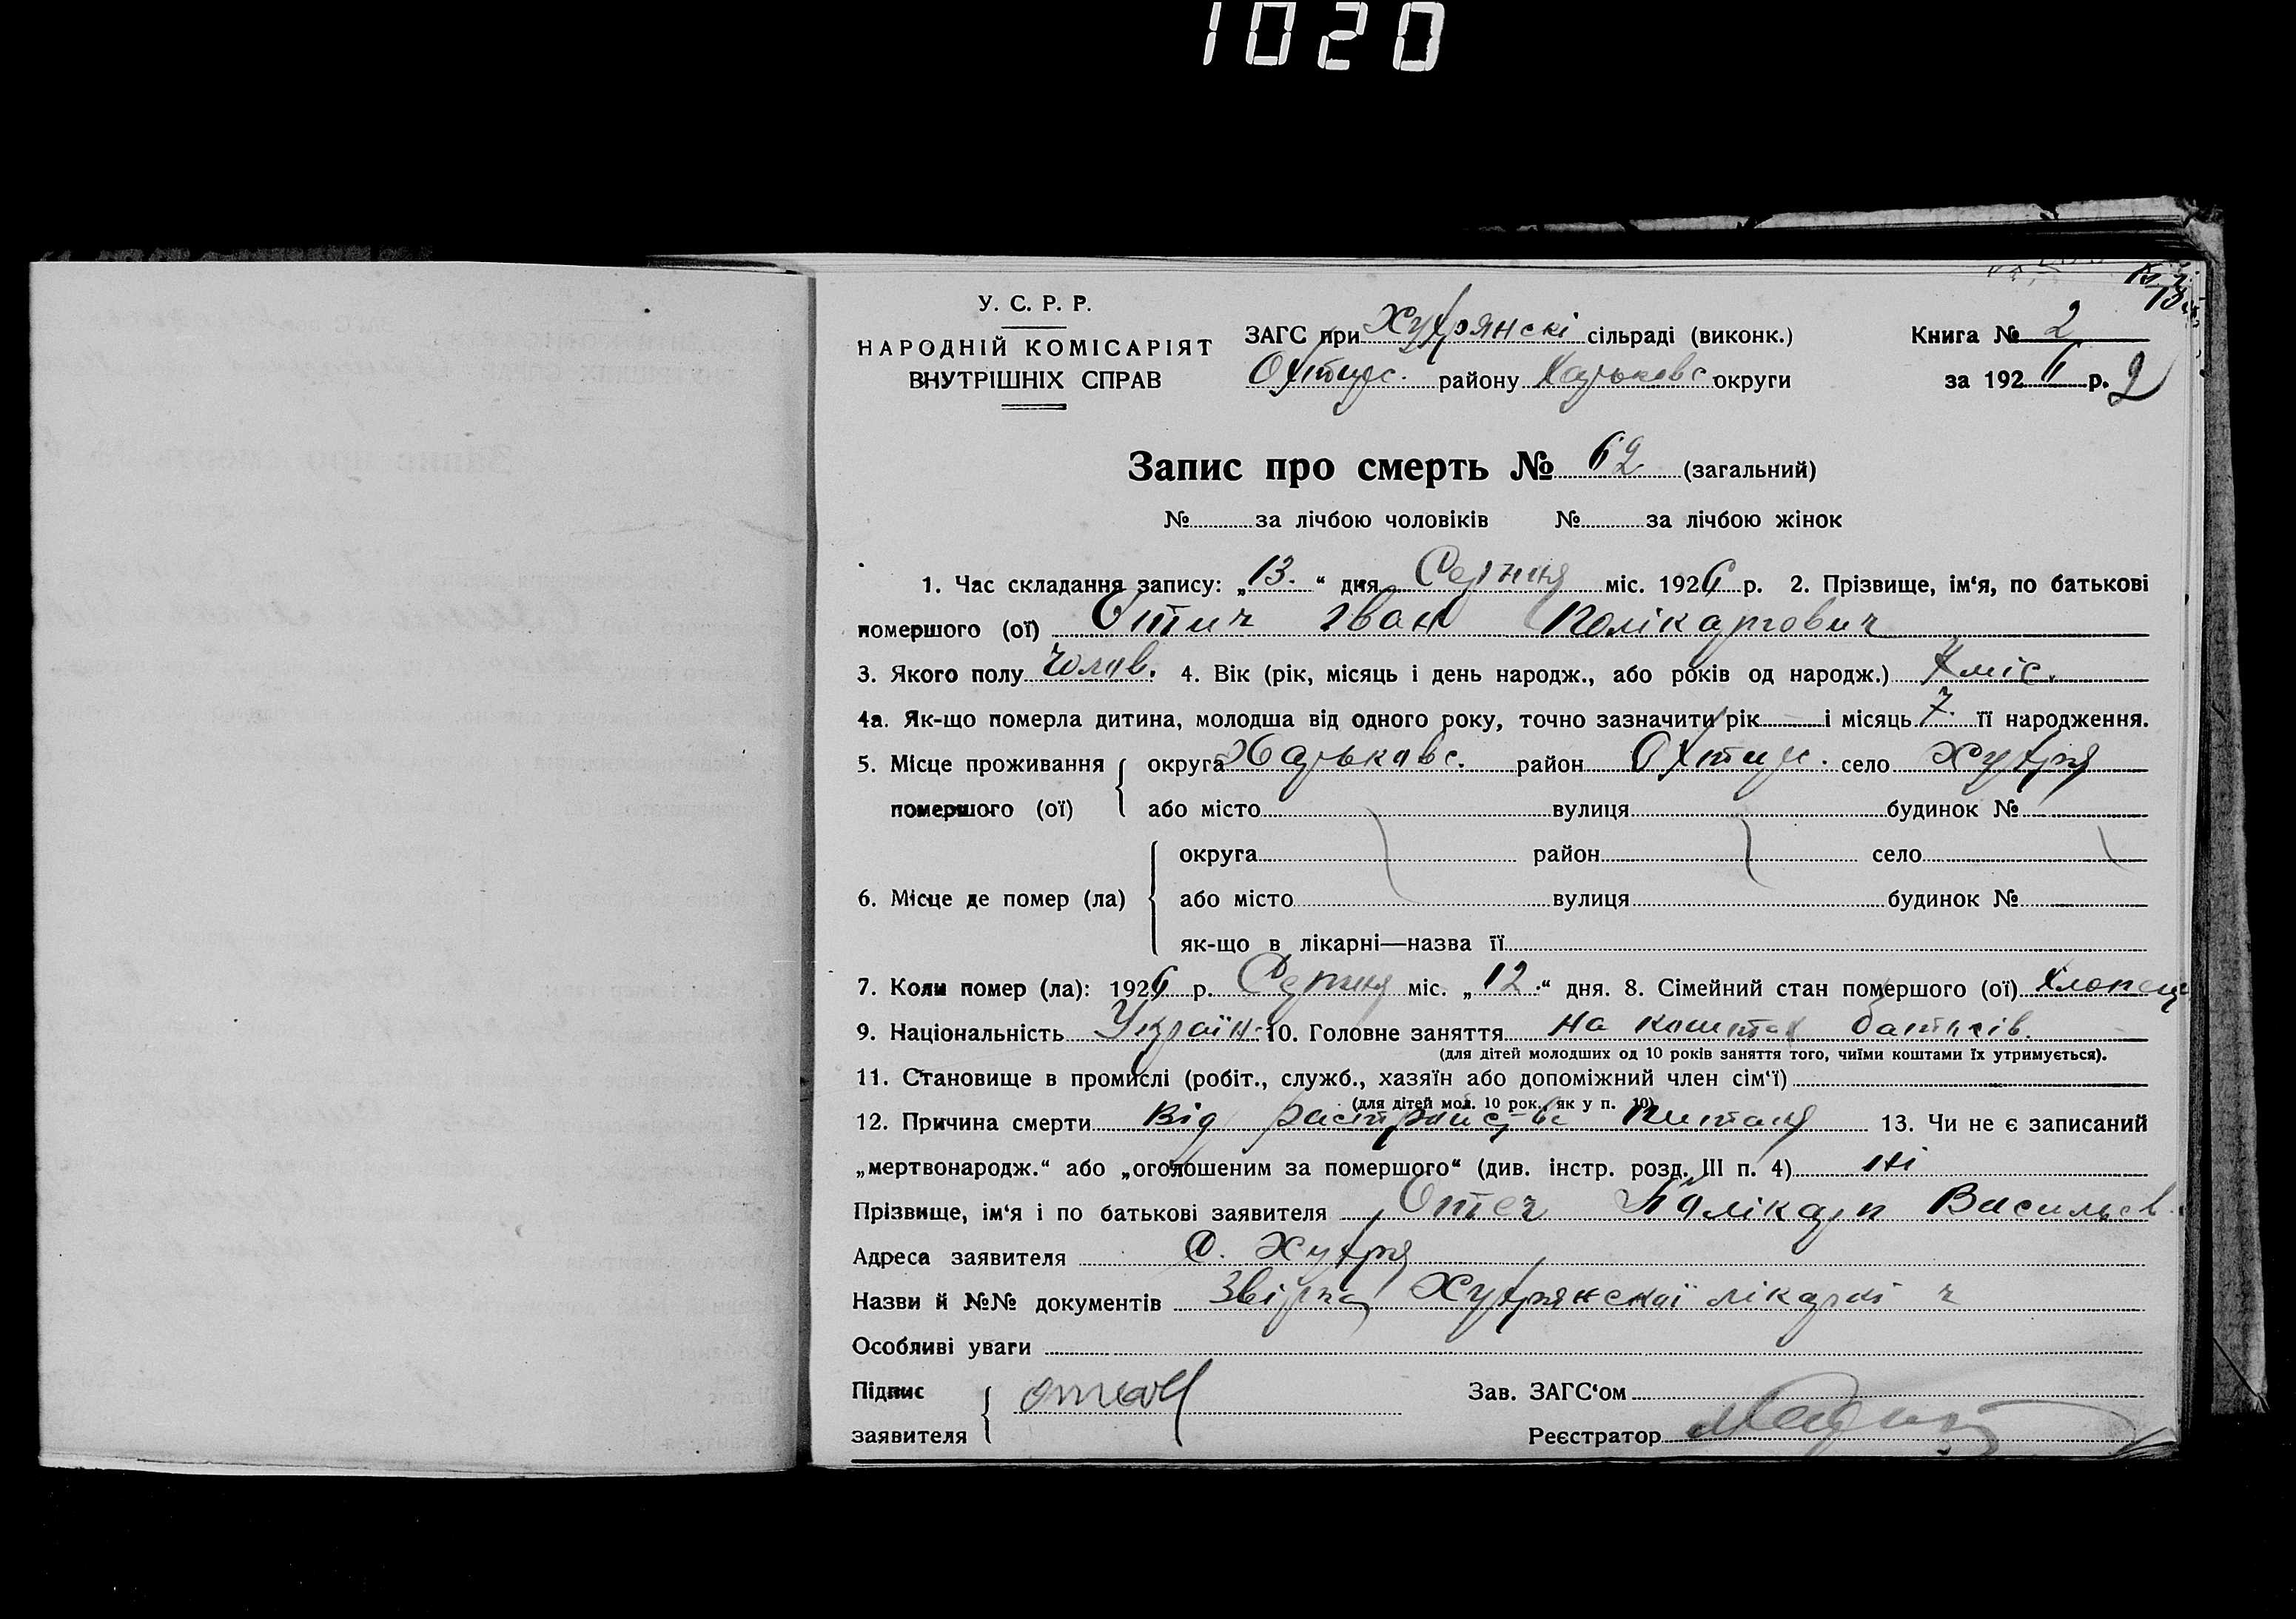 1020
У. С. Р. Р.
НАРОДНІЙ КОМІСАРІЯТ
ВНУТРІШНІХ СПРАВ
ЗАГС при Хухрянскі сільраді (виконк.)
Охтирс. району Харьковс округи
Книга № 2
за 1926 р. 2
Запис про смерть № 62 (загальний)
№ за лічбою чоловіків № за лічбою жінок
1. Час складання запису: „13.“ дня Серпня міс. 1926 р. 2. Прізвище, ім‘я, по батькові
помершого (ої) Отич Іван Полікарпович
3. Якого полу чолов. 4. Вік (рік, місяць і день народж., або років од народж.) міс.
4а. Як-що померла дитина, молодша від одного року, точно зазначити рік і місяць 7. її народження.
5. Місце проживання округа Харьковс. район Охтирс. село Хухря
помершого (ої) або місто вулиця будинок №
округа район село
6. Місце де помер (ла) або місто вулиця будинок №
як-що в лікарні—назва її
7. Коли помер (ла): 1926 р. Серпня міс. „12.“ дня. 8. Сімейний стан помершого (ої) Хлопець
9. Національність Україн. 10. Головне заняття на коштах батьків.
(для дітей молодших од 10 років заняття того, чиїми коштами їх утримується).
11. Становище в промислі (робіт., служб., хазяїн або допоміжний член сім‘ї)
(для дітей мол. 10 рок., як у п. 10)
12. Причина смерти Від растройства питания 13. Чи не є записаний
„мертвонародж.“ або „оголошеним за помершого“ (див. інстр. розд. III п. 4) ні
Прізвище, ім‘я і по батькові заявителя Отеч Полікарп Васильєв.
Адреса заявителя с. Хухря
Назви й №№ документів Звірка Хухрянської лікарні
Особливі уваги
Підпис Зав. ЗАГС‘ом
заявителя Реєстратор